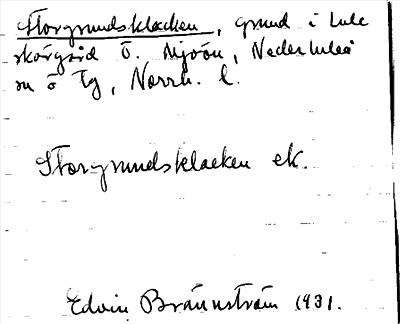 Storgrundsklacken, grund i Lule
skärgård Ö. Mjöön, Nederluleå
sn o Tg, Norrb. l.
Storgrundsklacken ek.
Edvin Brännström 1931.